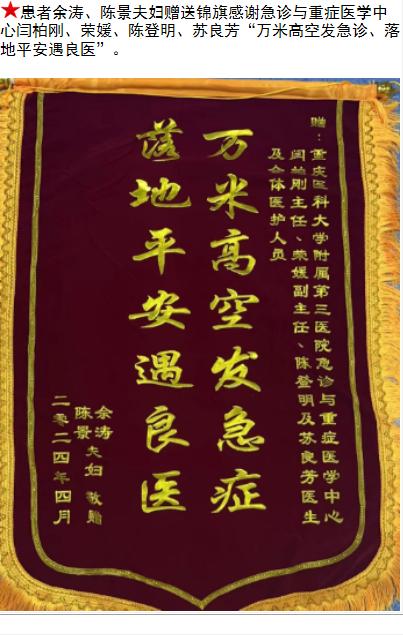 ★患者余涛、陈景夫妇赠送锦旗感谢急诊与重症医学中
心闫柏刚、荣媛、陈登明、苏良芳“万米高空发急诊、落
地平安遇良医”。
赠：重庆医科大学附属第三医院急诊与重症医学中心
闫柏刚主任、荣媛副主任、陈登明及苏良芳医生
及全体医护人员
万米高空发急症
落地平安遇良医
余涛
陈景夫妇 敬赠
二零二四年四月